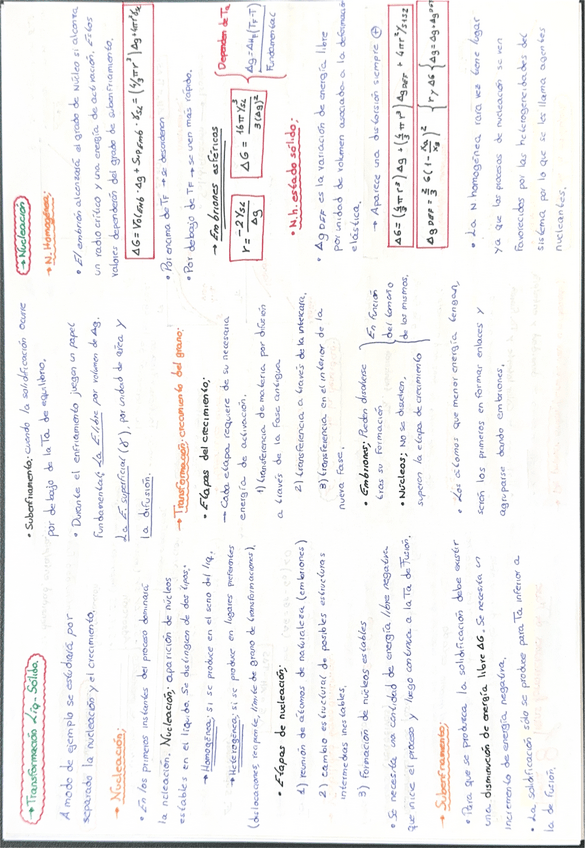 →Transformación Líq-Sólida
A modo de ejemplo se estudiará por
separado la nucleación y el crecimiento.
→ Nucleación;
• En los primeros instantes del proceso dominará
la ncleación. Nucleación; aparición de núcleos
estables en el líquido. Se distinguen de dos tipos;
→ Homogénea; si se produce en el seno del líq.
→ Heterogénea; si se produce en lugares preferentes
(dislocaciones, recipiente, límite de grano de transformaciones).
• Etapas de nucleación;
1) reunión de átomos de naturaleza (embriones)
2) cambio estructural de posibles estructuras
intermedias inestables.
3) Formación de núcleos estables
• Se necesita una cantidad de energía libre negativa
que inicie el proceso y luego continua a la Ta de Fusión.
→ Subenfriamento;
• Para que se produzca la solidificación debe existir
una disminución de energía libre ΔG. Se necesita un
incremento de energía negativa.
• La solidificación sólo se produce para Ta inferior a
la de fusión.
• Subenfriamento; cuando la solidificación ocurre
por debajo de la Ta de equilibrio.
• Durante el enfriamiento juegan un papel
fundamental; La E libre por volumen de Δg.
La E. superficial (γ), por unidad de área y
la difusión.
→ Transformación; crecimiento del grano;
• Etapas del crecimiento;
→ Cada etapa requiere de su necesaria
energía de activación.
1) transferencia de materia por difusión
a través de la fase antigua
2) transferencia a través de la intercara.
3) transferencia en el interior de la
nueva fase.
• Embriones; Pueden disolverse
tras su formación
• Núcleos; No se disuelven,
superan la etapa de crecimiento
En función
del tamaño
de los mismos.
• Los átomos que menor energía tengan,
serán los primeros en formar enlaces y
agruparse dando embriones.
→ Nucleación
→ N. Homogénea;
• El embrión alcanzará el grado de Núcleo si alcanza
un radio crítico y una energía de activación. Estos
valores dependerán del grado de subenfriamiento.
ΔG = Vol emb · Δg + Sup emb · γSL = (4/3 π r³) Δg + 4π r² γSL
• Por encima de TF → se desordenan
• Por debajo de TF → se unen más rápido.
→ Embriones esféricos
r = -2γSL / Δg
ΔG = 16π γSL³ / 3(Δg)²
Dependen de Ta
Fundamental
• N.h. estado sólido;
• Δg DEF es la variación de energía libre
por unidad de volumen asociado a la deformación
elástica.
→ Aparece una distorsión siempre ⊕
• La N homogénea rara vez tiene lugar
ya que los procesos de nucleación se ven
favorecidos por las heterogeneidades del
sistema por lo que se les llama agentes
nucleantes.